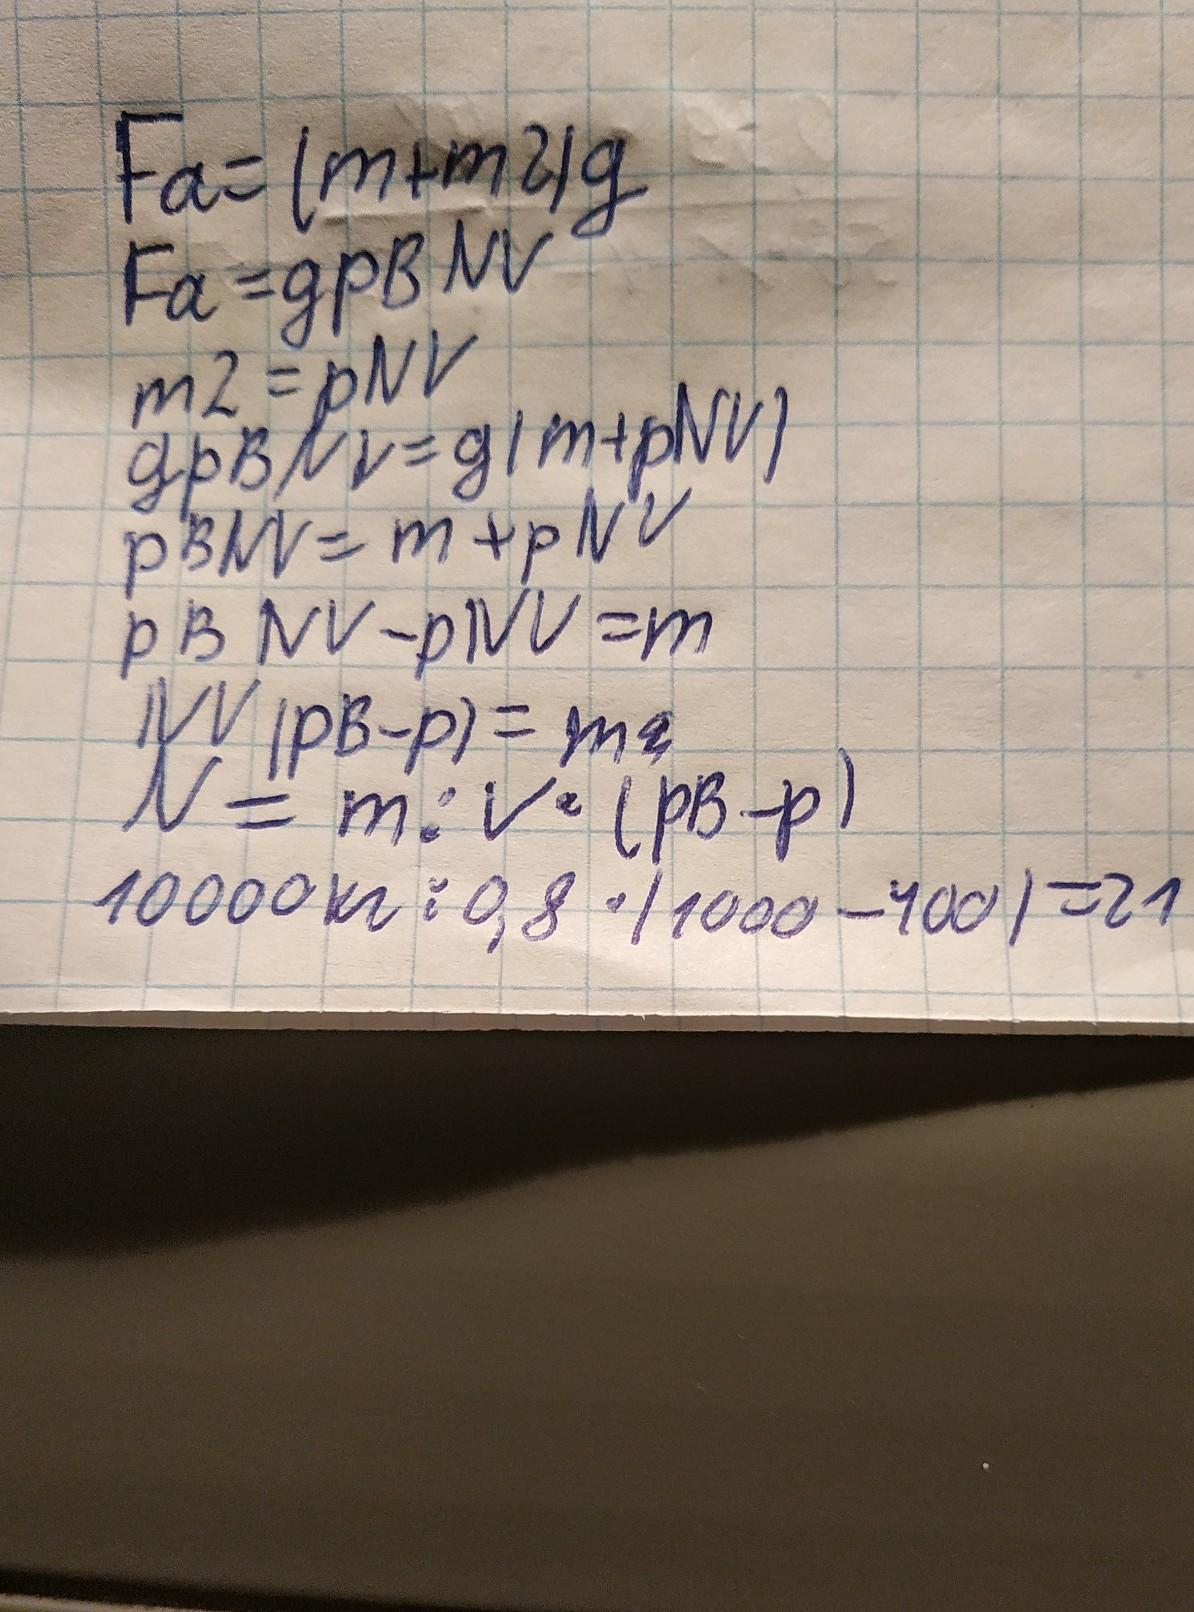 Fa=(m+m2)g
Fa=gpBNV
m2=pNV
gpBNV=g(m+pNV)
pBNV=m+pNV
pBNV-pNV=m
NV(pB-p)=m
N=m:V·(pB-p)
10000кг:0,8·(1000-400)=21